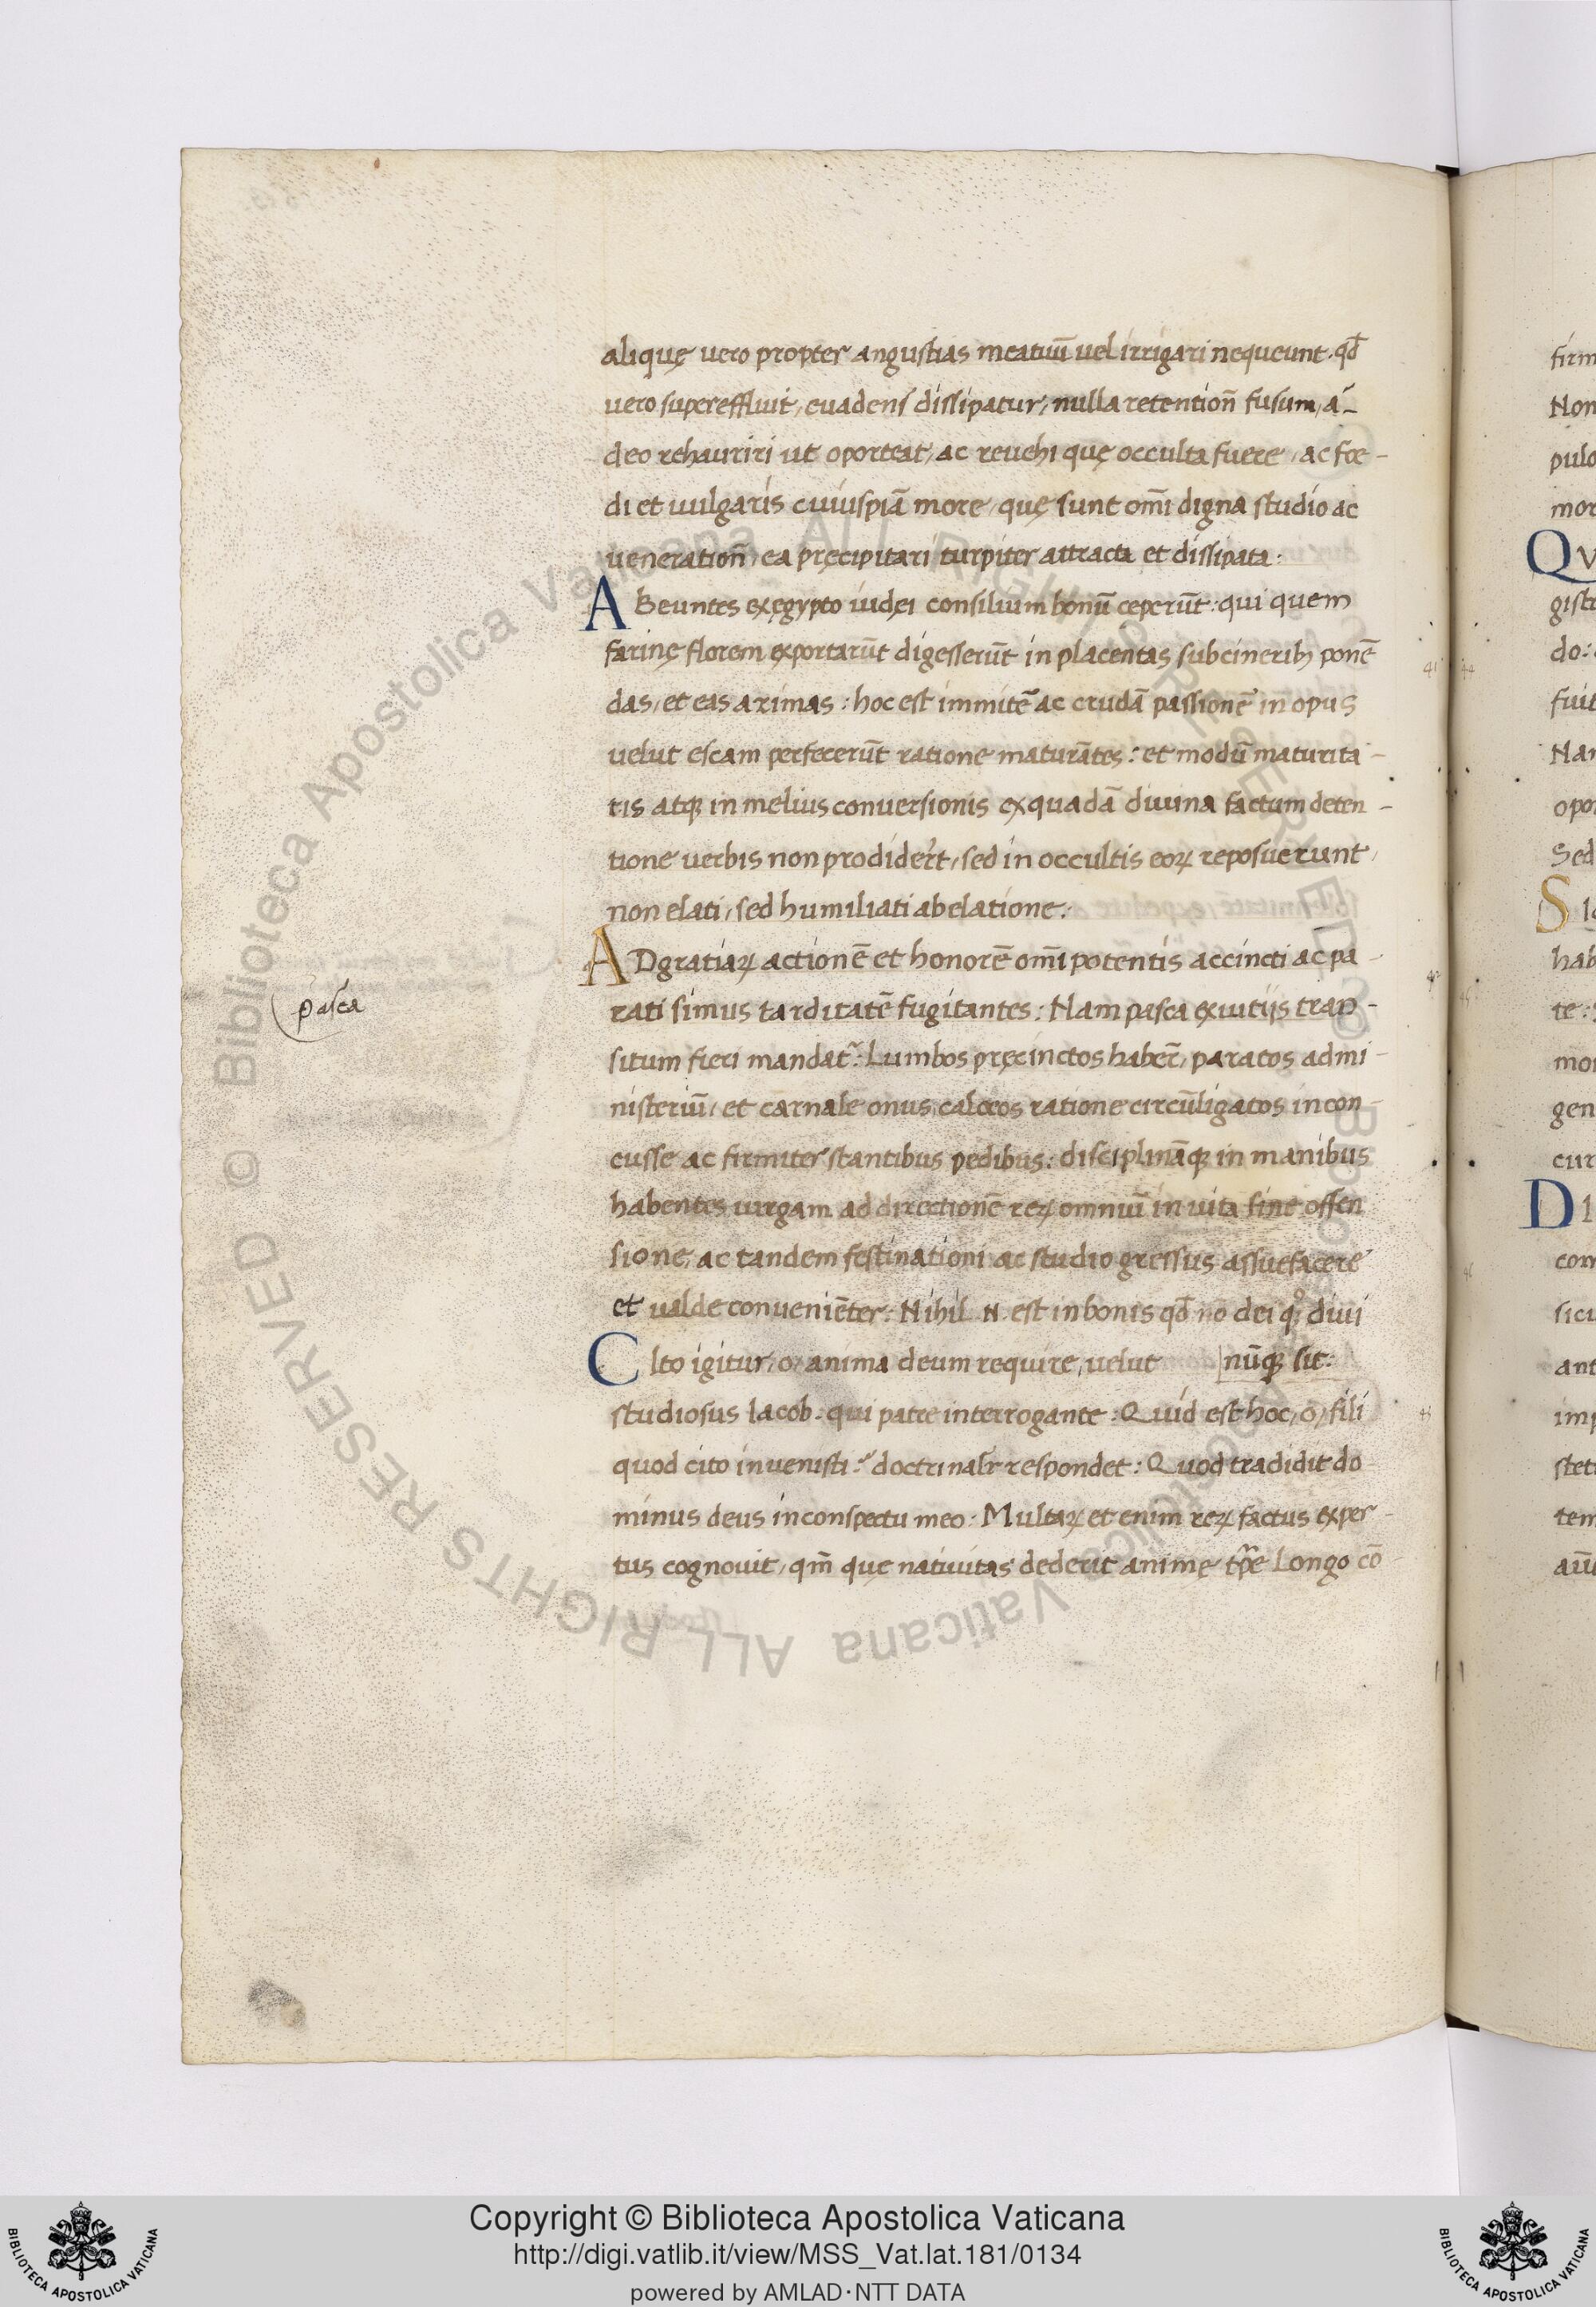 aliquę vero propter angustias meatuū vel irrigari nequeunt. qđ
vero supereffluit, evadens dissipatur, nulla retentioñ fusum, a᷑-
deo rehauriri ut oporteat, ac revehi quę occulta fuere, ac foe-
di et vulgaris cuiuspiā more, quę sunt om̄i digna studio ac
veneratioñ, ea pręcipitari turpiter attracta et dissipata:
ABeuntes exęgypto iudęi consilium bonū ceperūt: qui quem
farinę florem exportarūt digesserūt in placentas subcineribꝫ ponē
das, et eas azimas: hoc est immitē ac crudā passionē in opus
velut escam perfecerūt ratione maturātes: et modū maturita-
tis atqꝫ in melius conversionis ex quadā divina factum deten-
tione verbis non prodider̄t, sed in occultis eoꝝ reposuerunt,
non elati, sed humiliati ab elatione:
ADgratiaꝝ actionē et honorē om̄ipotentis accincti ac pa-
rati simus tarditatē fugitantes: Nam pasca ex vitijs tran-
Pasca
situm fieri mandat᷑: Lumbos pręcinctos haber̄, paratos ad mi-
nisteriū, et carnale onus, calceos ratione circūligatos incon-
cusse ac firmiter stantibus pedibus: disciplināqꝫ in manibus
habentes virgam ad directionē reꝝ omniū in vita sine offen
sione, ac tandem festinationi ac studio gressus assuefacere
et valde conveniēter: Nihil .N. est in bonis qđ nō dei qͦꝫ divi
CIto igitur, o, anima deum require, velut |nūqꝫ sit:
studiosus Iacob. qui patre interrogante: Quid est hoc, o, fili
quod cito invenisti? doctrinalr̄ respondet: Quod tradidit do
minus deus in conspectu meo: Multaꝝ et enim reꝝ factus exper-
tus cognovit, qm̄ quę nativitas dederit animę tp̄re Longo cō
41
42
43
44
45
46
firm
Non
pulc
mor
Qv
gistr
do:
fuit
Nar
opor
Sed
SI
hab
te:
mor
gen
cur
DI
com
sicu
ant
imp
stet
tem
© Biblioteca Apostolica Vaticana ALL RIGHTS RESERVED © Biblioteca Apostolica Vaticana ALL RIGHTS RESERVED
Copyright © Biblioteca Apostolica Vaticana
http://digi.vatlib.it/view/MSS_Vat.lat.181/0134
powered by AMLAD·NTT DATA
BIBLIOTECA APOSTOLICA VATICANA
BIBLIOTECA APOSTOLICA VATICANA